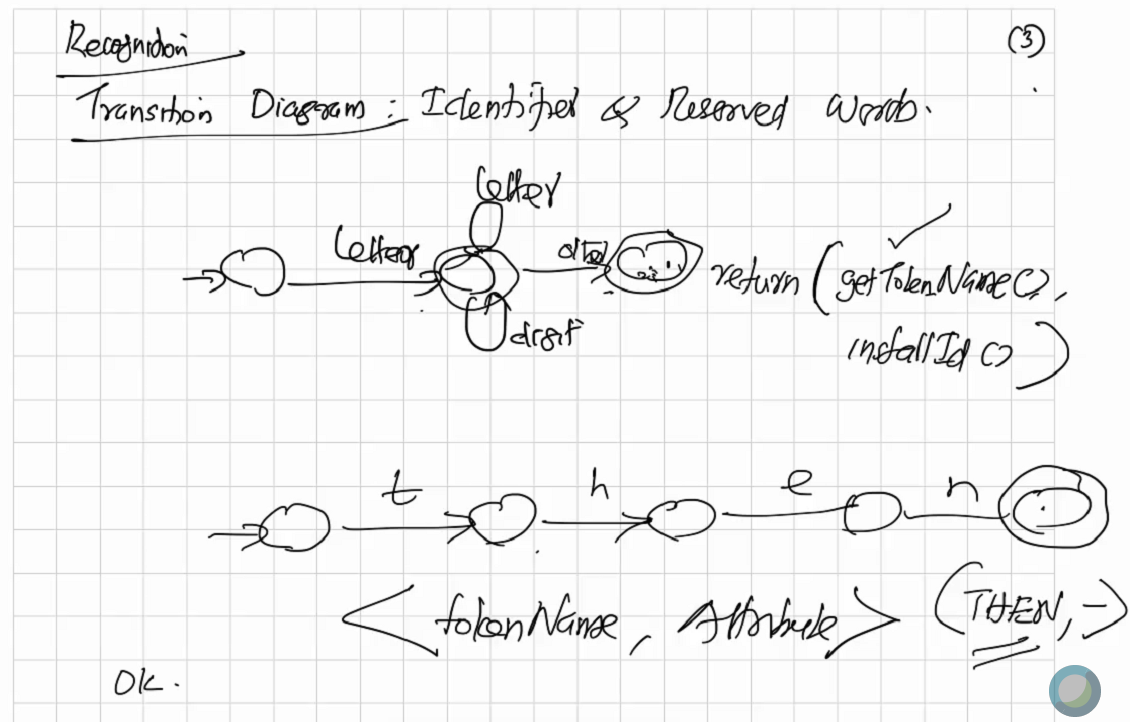 Recognition
(3)
Transition Diagram : Identifier & Reserved Words.
letter
letter
other
digit
return (getTokenName(),
installId())
t h e n
<tokenName, Attribute> (THEN, -)
OK.